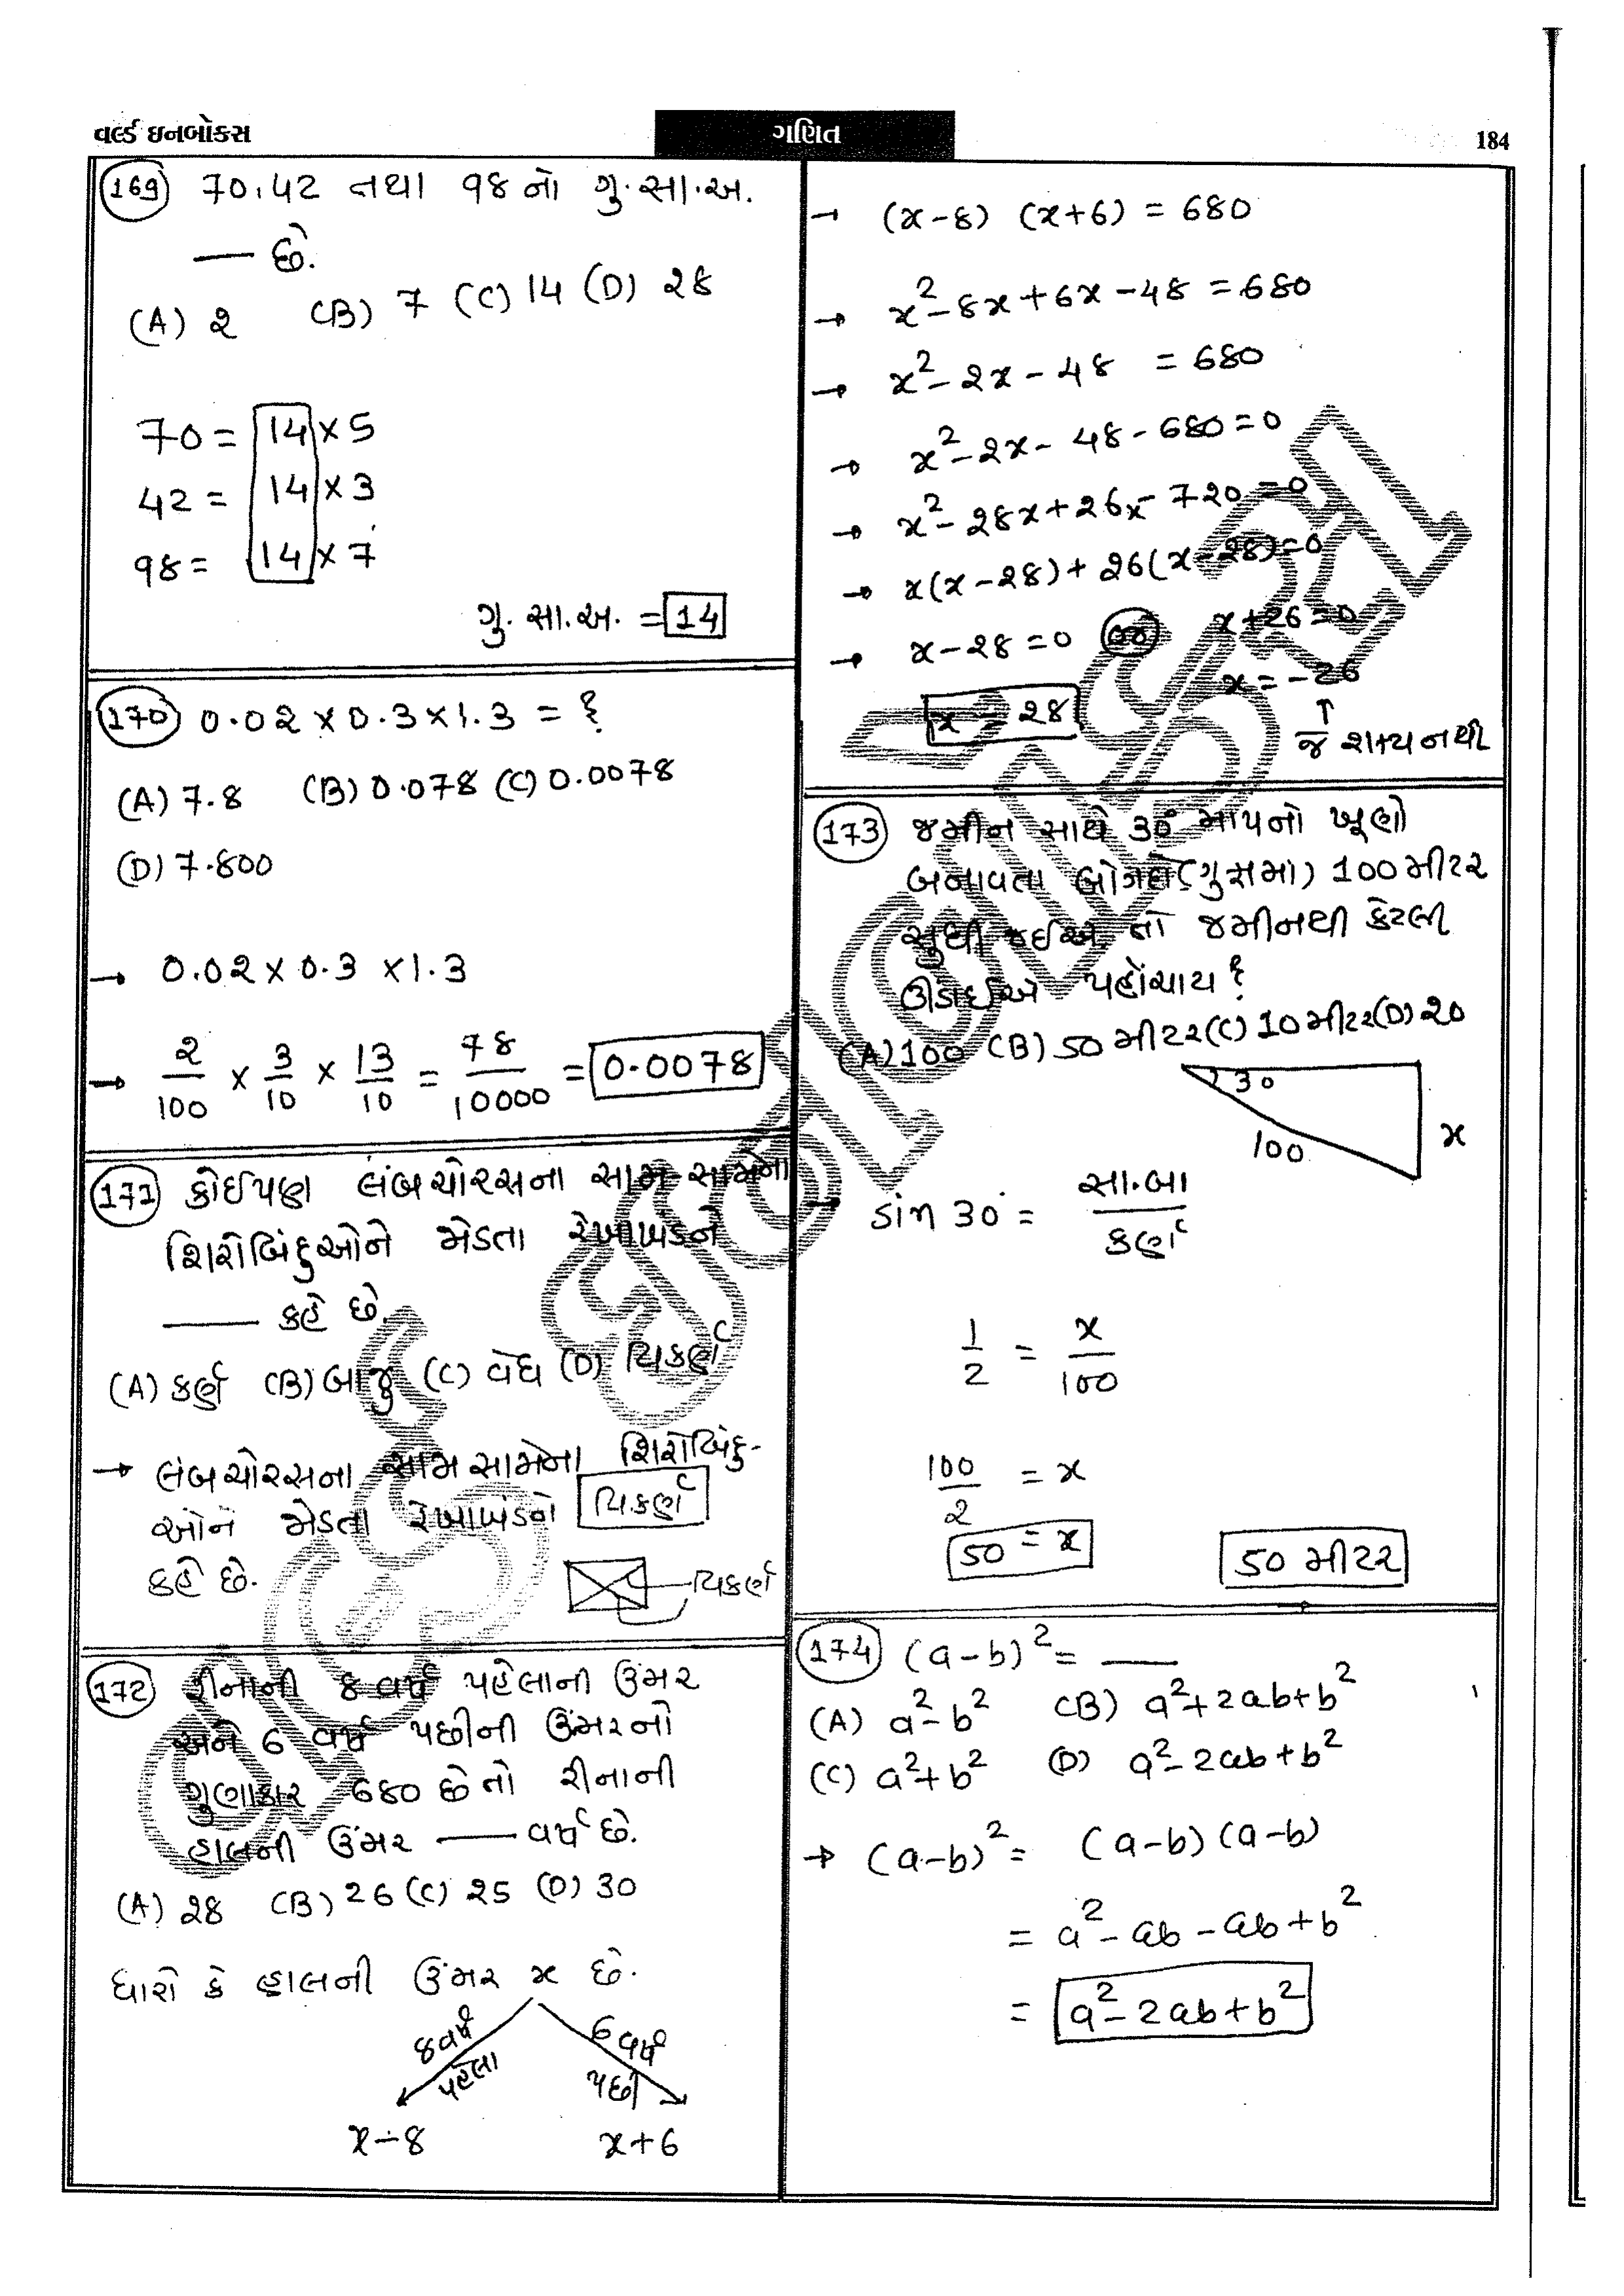 વર્લ્ડ ઇનબોકસ
ગણિત
184
169 70,42 તથા ૧૪ નો ગુ.સા.અ.
— છે.
(A) ૨ (B) 7 (C) 14 (D) ૨૪
70 = 14 × 5
42 = 14 × 3
૧૪ = 14 × 7
ગુ. સા.અ. = 14
170 0.0૨ × 0.3 × 1.3 = ?
(A) 7.8 (B) 0.078 (C) 0.0078
(D) 7.800
→ 0.0૨ × 0.3 × 1.3
→ ૨/100 × 3/10 × 13/10 = 78/10000 = 0.0078
171 કોઈપણ લંબચોરસના સામ-સામેના
શિરોબિંદુઓને જોડતા રેખાખંડને
—— કહે છે.
(A) કર્ણ (B) બાજુ (C) વેધ (D) વિકર્ણ
→ લંબચોરસના સામસામેના શિરોબિંદુ-
ઓને જોડતા રેખાખંડને વિકર્ણ
કહે છે.
વિકર્ણ
172 રીનાની 8 વર્ષ પહેલાની ઉંમર
અને 6 વર્ષ પછીની ઉંમરનો
ગુણાકાર 680 છે તો રીનાની
હાલની ઉંમર —— વર્ષ છે.
(A) ૨8 (B) ૨6 (C) ૨5 (D) 30
ધારો કે હાલની ઉંમર x છે.
8 વર્ષ પહેલા
6 વર્ષ પછી
x-8 x+6
→ (x-8) (x+6) = 680
→ x²-8x+6x-48 = 680
→ x²-૨x-48 = 680
→ x²-૨x-48-680=0
→ x²-૨8x+૨6x-7૨0=0
→ x(x-૨8)+૨6(x-૨8)=0
→ x-૨8=0 અથવા x+૨6=0
x = ૨8 x=-૨6
↑
જે શક્ય નથી
173 જમીન સાથે 30° માપનો ખૂણો
બનાવતા બોગદા(ગુફામા) 100 મીટર
સુધી જઈએ તો જમીનથી કેટલી
ઊંડાઈએ પહોંચાય?
(A) 100 (B) 50 મીટર (C) 10 મીટર (D) ૨0
30
100
x
→ sin 30° = સા.બા/કર્ણ
1/2 = x/100
100/૨ = x
50 = x
50 મીટર
174 (a-b)² = ——
(A) a²-b² (B) a²+2ab+b²
(C) a²+b² (D) a²-2ab+b²
→ (a-b)² = (a-b)(a-b)
= a²-ab-ab+b²
= a²-2ab+b²